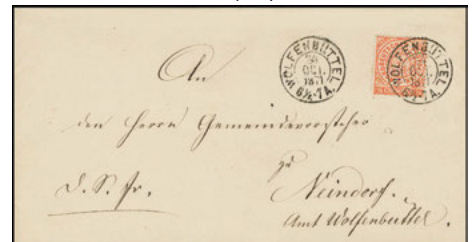 WOLFENBÜTTEL
OCT.
1871
6½-7A.
WOLFENBÜTTEL
OCT.
1871
6½-7A.
An
den Herrn Gemeindevorsteher
zu
D. S. Fr.
Neindorf.
Amt Wolfenbüttel.